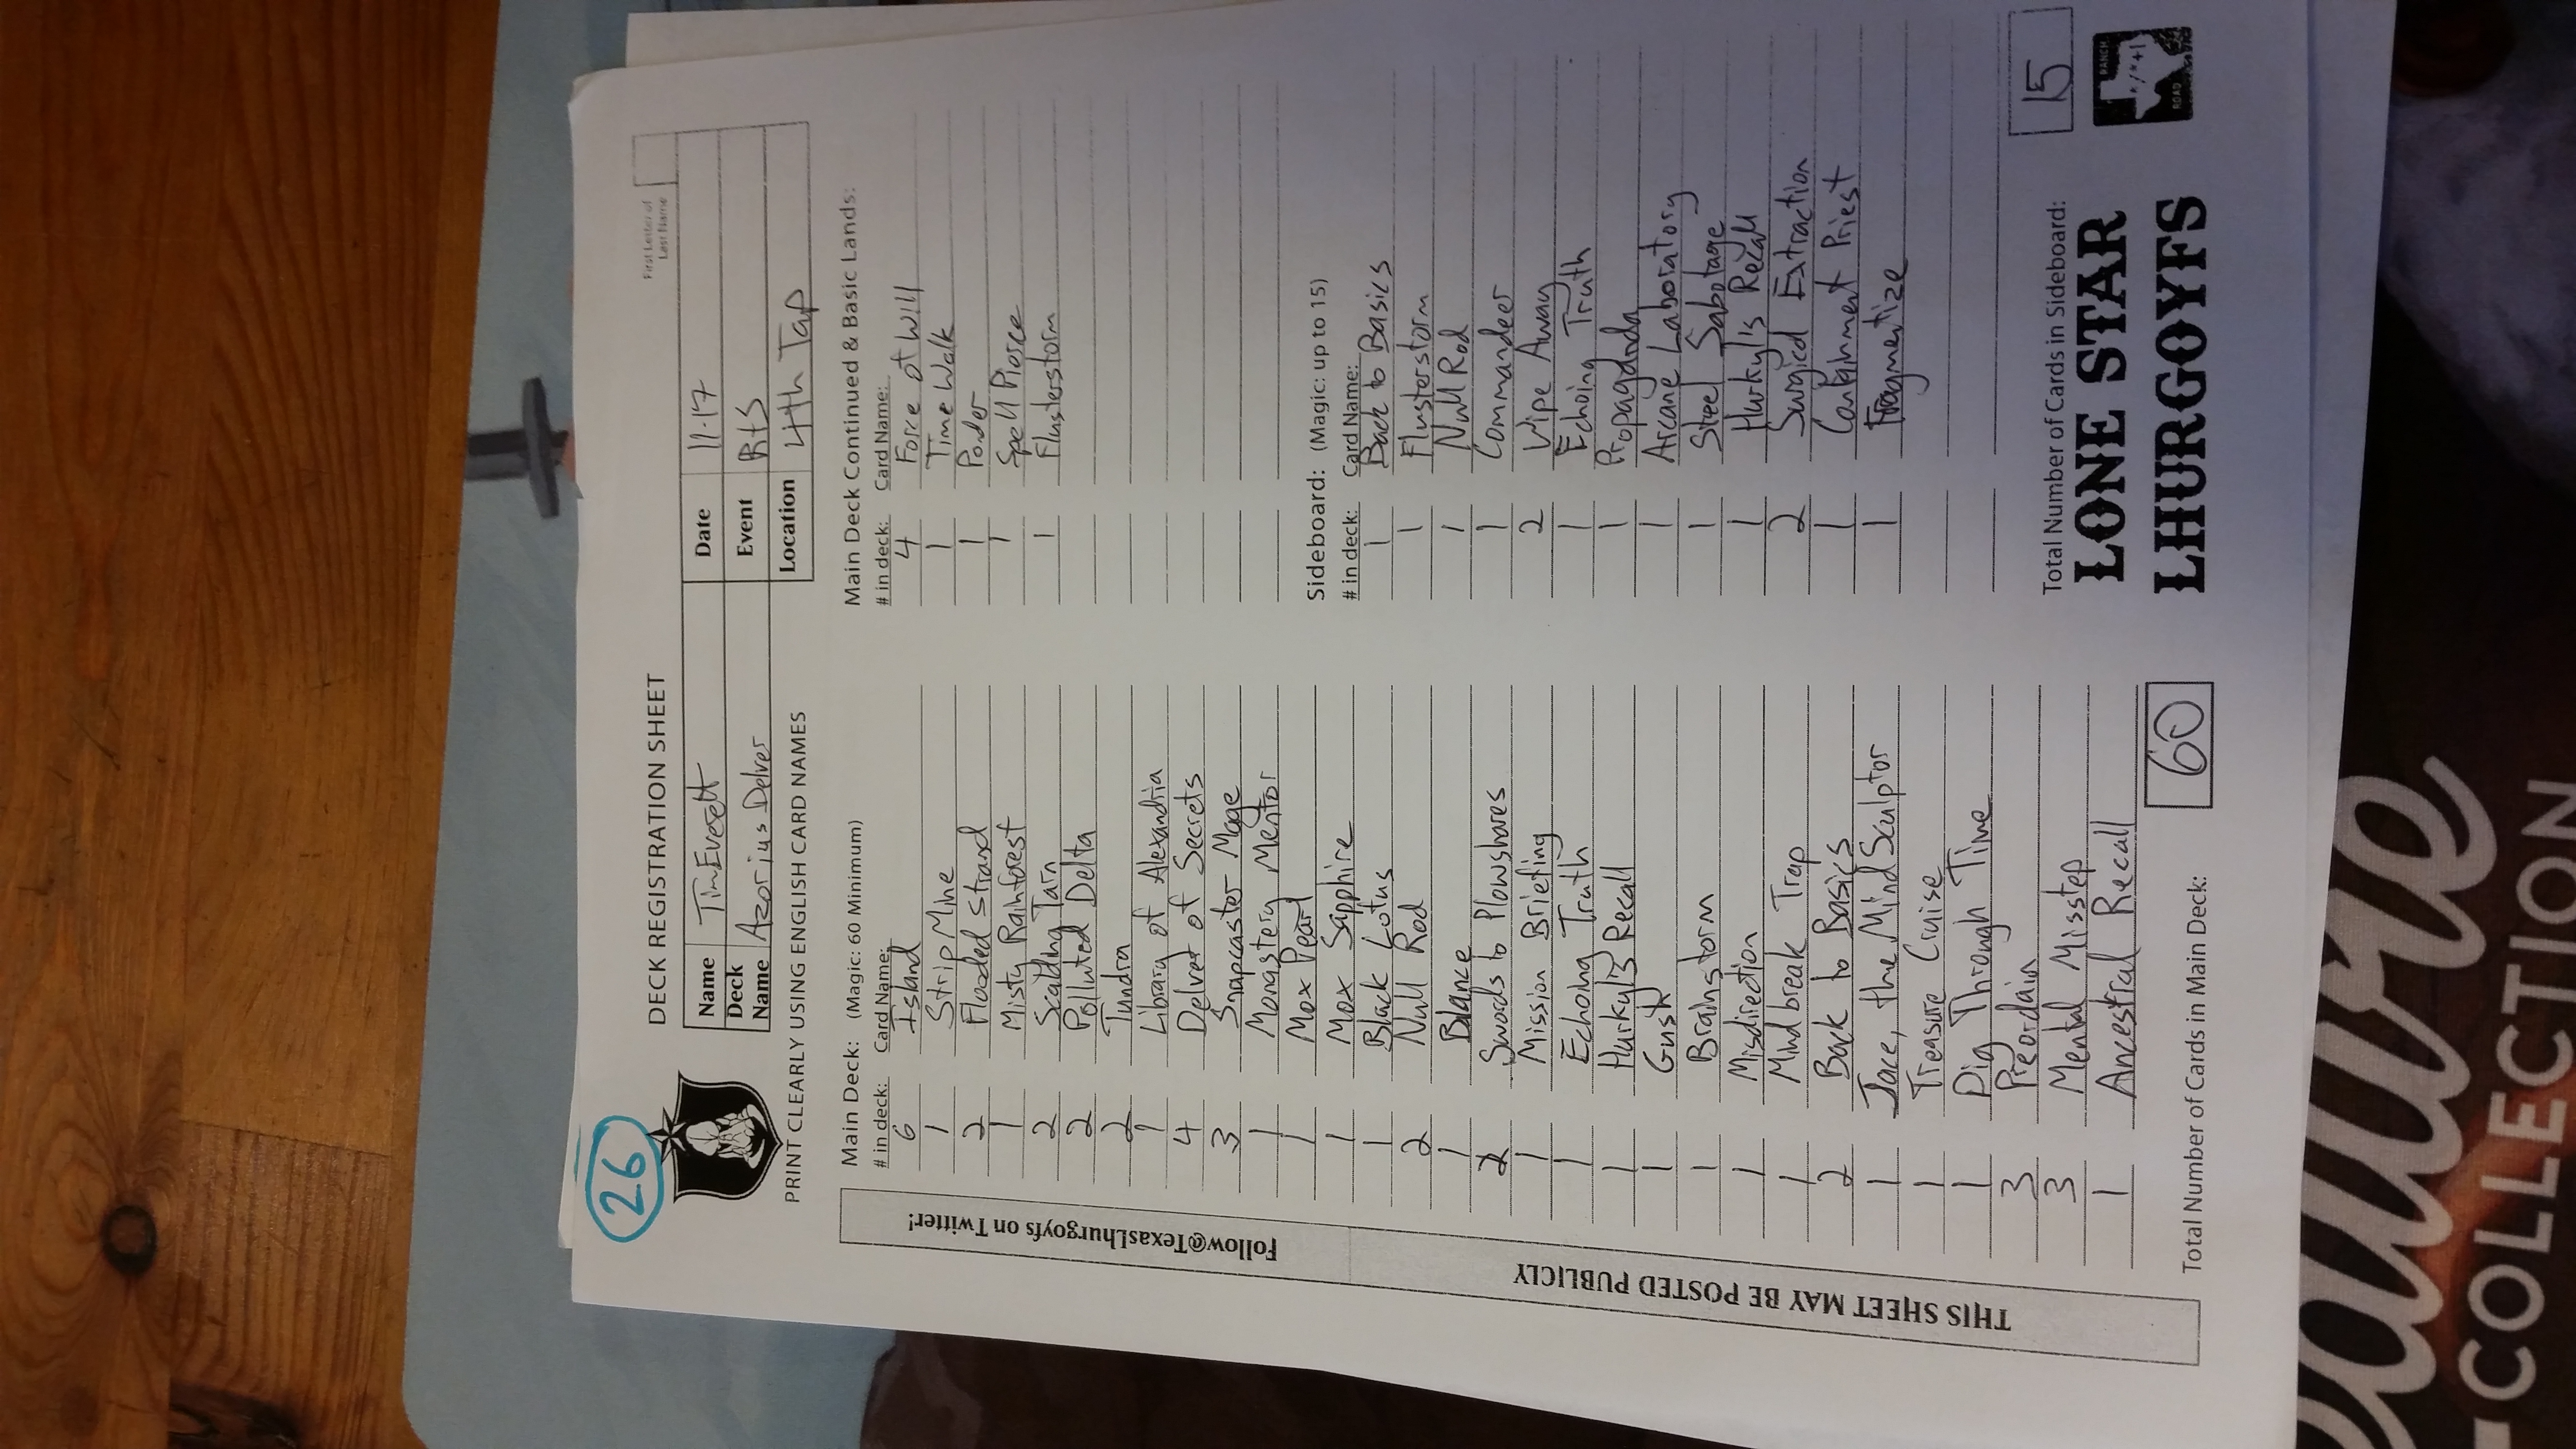 26
DECK REGISTRATION SHEET
First Letter of
Last Name
Name Tim Everett
Date 11-17
Deck Name Azorius Delver
Event RtS
Location 4th Tap
PRINT CLEARLY USING ENGLISH CARD NAMES
Follow@TexasLhurgoyfs on Twitter!
THIS SHEET MAY BE POSTED PUBLICLY
Main Deck: (Magic: 60 Minimum)
# in deck: Card Name:
6 Island
1 Strip Mine
2 Flooded Strand
1 Misty Rainforest
2 Scalding Tarn
2 Polluted Delta
2 Tundra
1 Library of Alexandria
4 Delver of Secrets
3 Snapcaster Mage
1 Monastery Mentor
1 Mox Pearl
1 Mox Sapphire
1 Black Lotus
2 Null Rod
1 Blance
2 Swords to Plowshares
1 Mission Briefing
1 Echoing Truth
1 Hurkyl's Recall
1 Gush
1 Brainstorm
1 Misdirection
1 Mindbreak Trap
2 Back to Basics
1 Jace, the Mind Sculptor
1 Treasure Cruise
1 Dig Through Time
3 Preordain
3 Mental Misstep
1 Ancestral Recall
Total Number of Cards in Main Deck: 60
Main Deck Continued & Basic Lands:
# in deck: Card Name:
4 Force of Will
1 Time Walk
1 Ponder
1 Spell Pierce
1 Flusterstorm
Sideboard: (Magic: up to 15)
# in deck: Card Name:
1 Back to Basics
1 Flusterstorm
1 Null Rod
1 Commandeer
2 Wipe Away
1 Echoing Truth
1 Propaganda
1 Arcane Laboratory
1 Steel Sabotage
1 Hurkyl's Recall
2 Surgical Extraction
1 Containment Priest
1 Fragmentize
Total Number of Cards in Sideboard: 15
LONE STAR
LHURGOYFS
RANCH
*/*+1
ROAD
COLLECTION